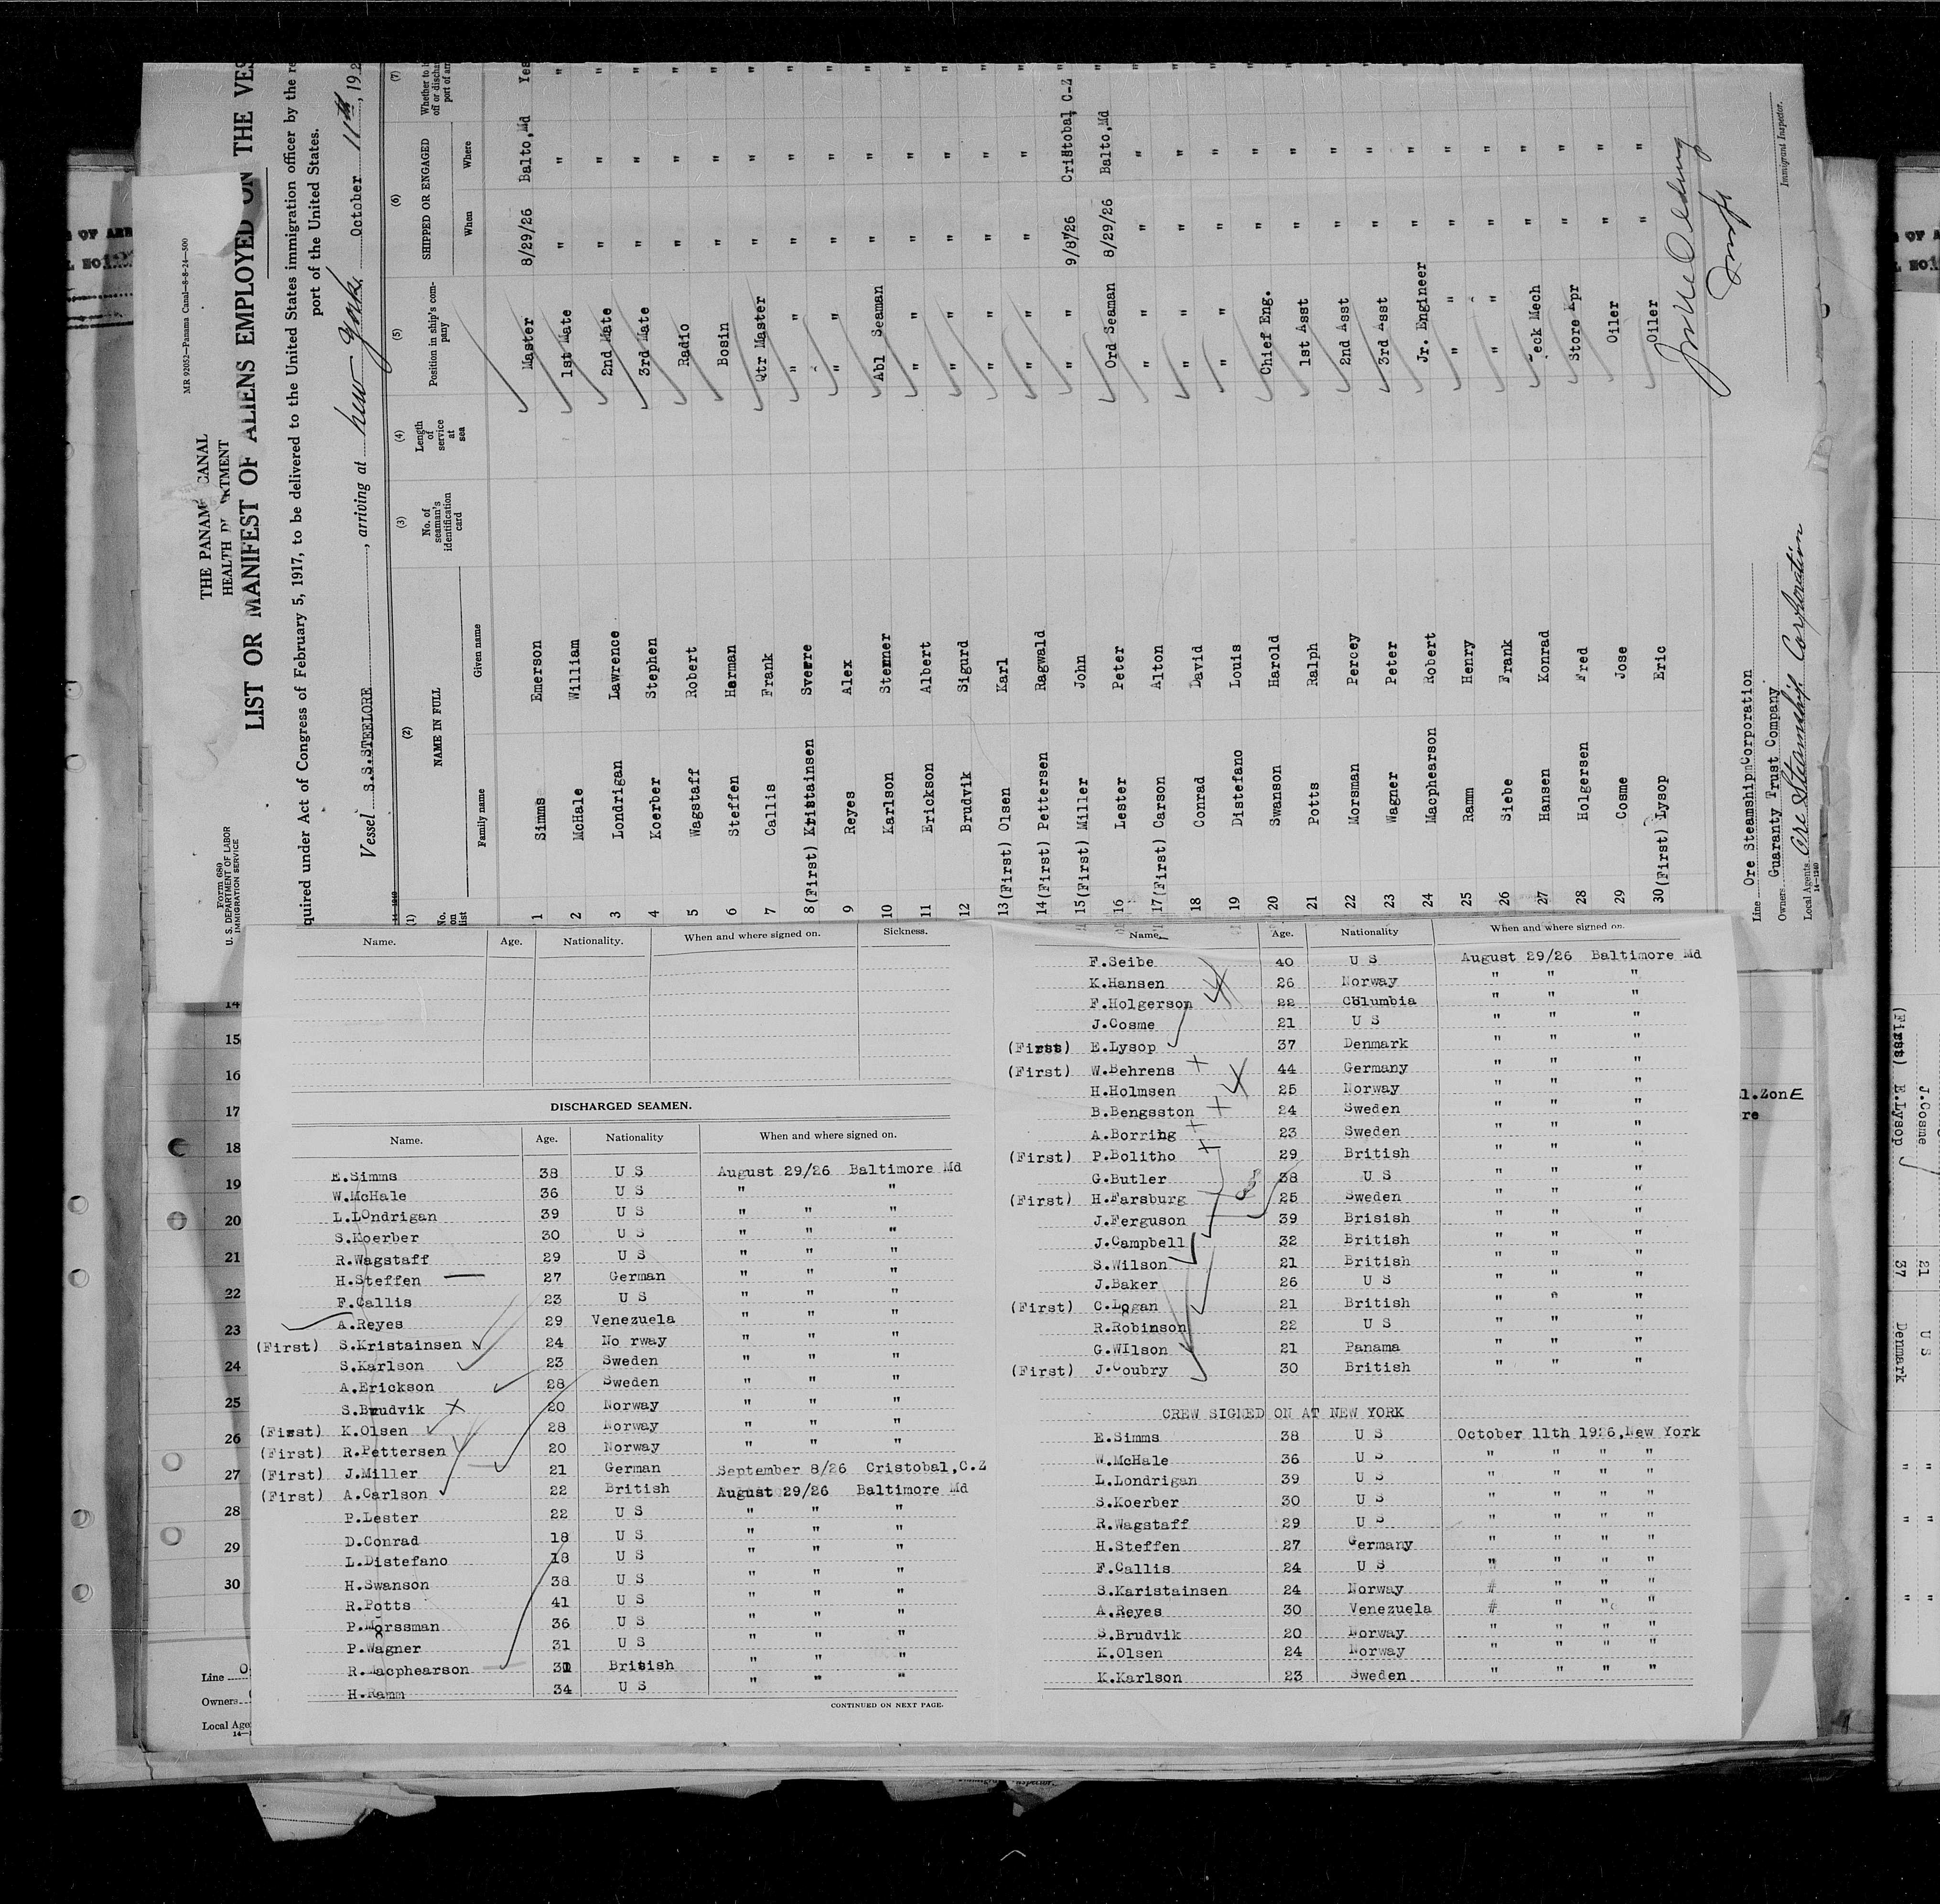 MR 92052—Panama Canal—8-8-24—500
Form 680
U. S. DEPARTMENT OF LABOR
IMMIGRATION SERVICE
THE PANAMA CANAL
LIST OR MANIFEST OF ALIENS EMPLOYED ON THE VES
quired under Act of Congress of February 5, 1917, to be delivered to the United States immigration officer by the re
port of the United States.
Vessel S.S.STEELORE, arriving at New York, October 11th, 192
(1) (2) (3) (4) (5) (6) (7)
No. on list NAME IN FULL No. of seaman's identification card Length of service at sea Position in ship's company SHIPPED OR ENGAGED
Family name Given name When Where
1 Simms Emerson Master 8/29/26 Balto,Md Yes
2 McHale William 1st Mate " " "
3 Londrigan Lawrence 2nd Mate " " "
4 Koerber Stephen 3rd Mate " " "
5 Wagstaff Robert Radio " " "
6 Steffen Herman Bosin " " "
7 Callis Frank Qtr Master " " "
8 (First) Kristainsen Sverre " " " "
9 Reyes Alex " " " "
10 Karlson Stenner Abl Seaman " " "
11 Erickson Albert " " " "
12 Brudvik Sigurd " " " "
13 (First) Olsen Karl " " " "
14 (First) Pettersen Ragwald " " " "
15 (First) Miller John " 9/8/26 Cristobal, C-Z "
16 Lester Peter Ord Seaman 8/29/26 Balto,Md "
17 (First) Carson Alton " " " "
18 Conrad David " " " "
19 Distefano Louis " " " "
20 Swanson Harold Chief Eng. " " "
21 Potts Ralph 1st Asst " " "
22 Morsman Percey 2nd Asst " " "
23 Wagner Peter 3rd Asst " " "
24 Macphearson Robert Jr. Engineer " " "
25 Ramm Henry " " " "
26 Siebe Frank " " " "
27 Hansen Konrad eck Mech " " "
28 Holgersen Fred Store Kpr " " "
29 Cosme Jose Oiler " " "
30 (First) Lysop Eric Oiler " " "
Line Ore Steamship Corporation
Owners Guaranty Trust Company
Local Agents Ore Steamship Corporation
14—1240
Immigrant Inspector.
Name. Age. Nationality. When and where signed on. Sickness.
DISCHARGED SEAMEN.
Name. Age. Nationality When and where signed on.
E.Simms 38 U S August 29/26 Baltimore Md
W.McHale 36 U S " "
L.LOndrigan 39 U S " " "
S.Koerber 30 U S " " "
R.Wagstaff 29 U S " " "
H.Steffen 27 German " " "
F.Callis 23 U S " " "
A.Reyes 29 Venezuela " " "
(First) S.Kristainsen 24 No rway " " "
S.Karlson 23 Sweden " " "
A.Erickson 28 Sweden " " "
S.Brudvik 20 Norway " " "
(First) K.Olsen 28 Norway " " "
(First) R.Pettersen 20 Norway " " "
(First) J.Miller 21 German September 8/26 Cristobal,C.Z
(First) A.Carlson 22 British August 29/26 Baltimore Md
P.Lester 22 U S " " "
D.Conrad 18 U S " " "
L.Distefano 18 U S " " "
H.Swanson 38 U S " " "
R.Potts 41 U S " " "
P.Morssman 36 U S " " "
P.Wagner 31 U S " " "
R.Macphearson 31 British " " "
H.Ramm 34 U S " " "
CONTINUED ON NEXT PAGE.
Name. Age. Nationality When and where signed on.
F.Seibe 40 U S August 29/26 Baltimore Md
K.Hansen 26 Norway " " "
F.Holgerson 22 COlumbia " " "
J.Cosme 21 U S " " "
(First) E.Lysop 37 Denmark " " "
(First) W.Behrens 44 Germany " " "
H.Holmsen 25 Norway " " "
B.Bengsston 24 Sweden " " "
A.Borring 23 Sweden " " "
(First) P.Bolitho 29 British " " "
G.Butler 38 U S " " "
(First) H.Farsburg 25 Sweden " " "
J.Ferguson 39 Brisish " " "
J.Campbell 32 British " " "
S.Wilson 21 British " " "
J.Baker 26 U S " " "
(First) C.Logan 21 British " " "
R.Robinson 22 U S " " "
G.WIlson 21 Panama " " "
(First) J.Coubry 30 British " " "
CREW SIGNED ON AT NEW YORK
E.Simms 38 U S October 11th 1926,New York
W.McHale 36 U S " " " "
L.Londrigan 39 U S " " " "
S.Koerber 30 U S " " " "
R.Wagstaff 29 U S " " " "
H.Steffen 27 Germany " " " "
F.Callis 24 U S " " " "
S.Karistainsen 24 Norway # " " "
A.Reyes 30 Venezuela # " " "
S.Brudvik 20 Norway " " " "
K.Olsen 24 Norway " " " "
K.Karlson 23 Sweden " " " "
14
15
16
17
18
19
20
21
22
23
24
25
26
27
28
29
30
Line
Owners
Local Age
l.ZonE
re
J.Cosme 21 U S " "
(First) E.Lysop 37 Denmark " "